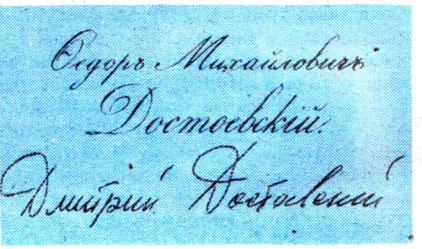 Ѳедоръ Михайловичъ
Достоевскій.
Дмитрій Достоевский